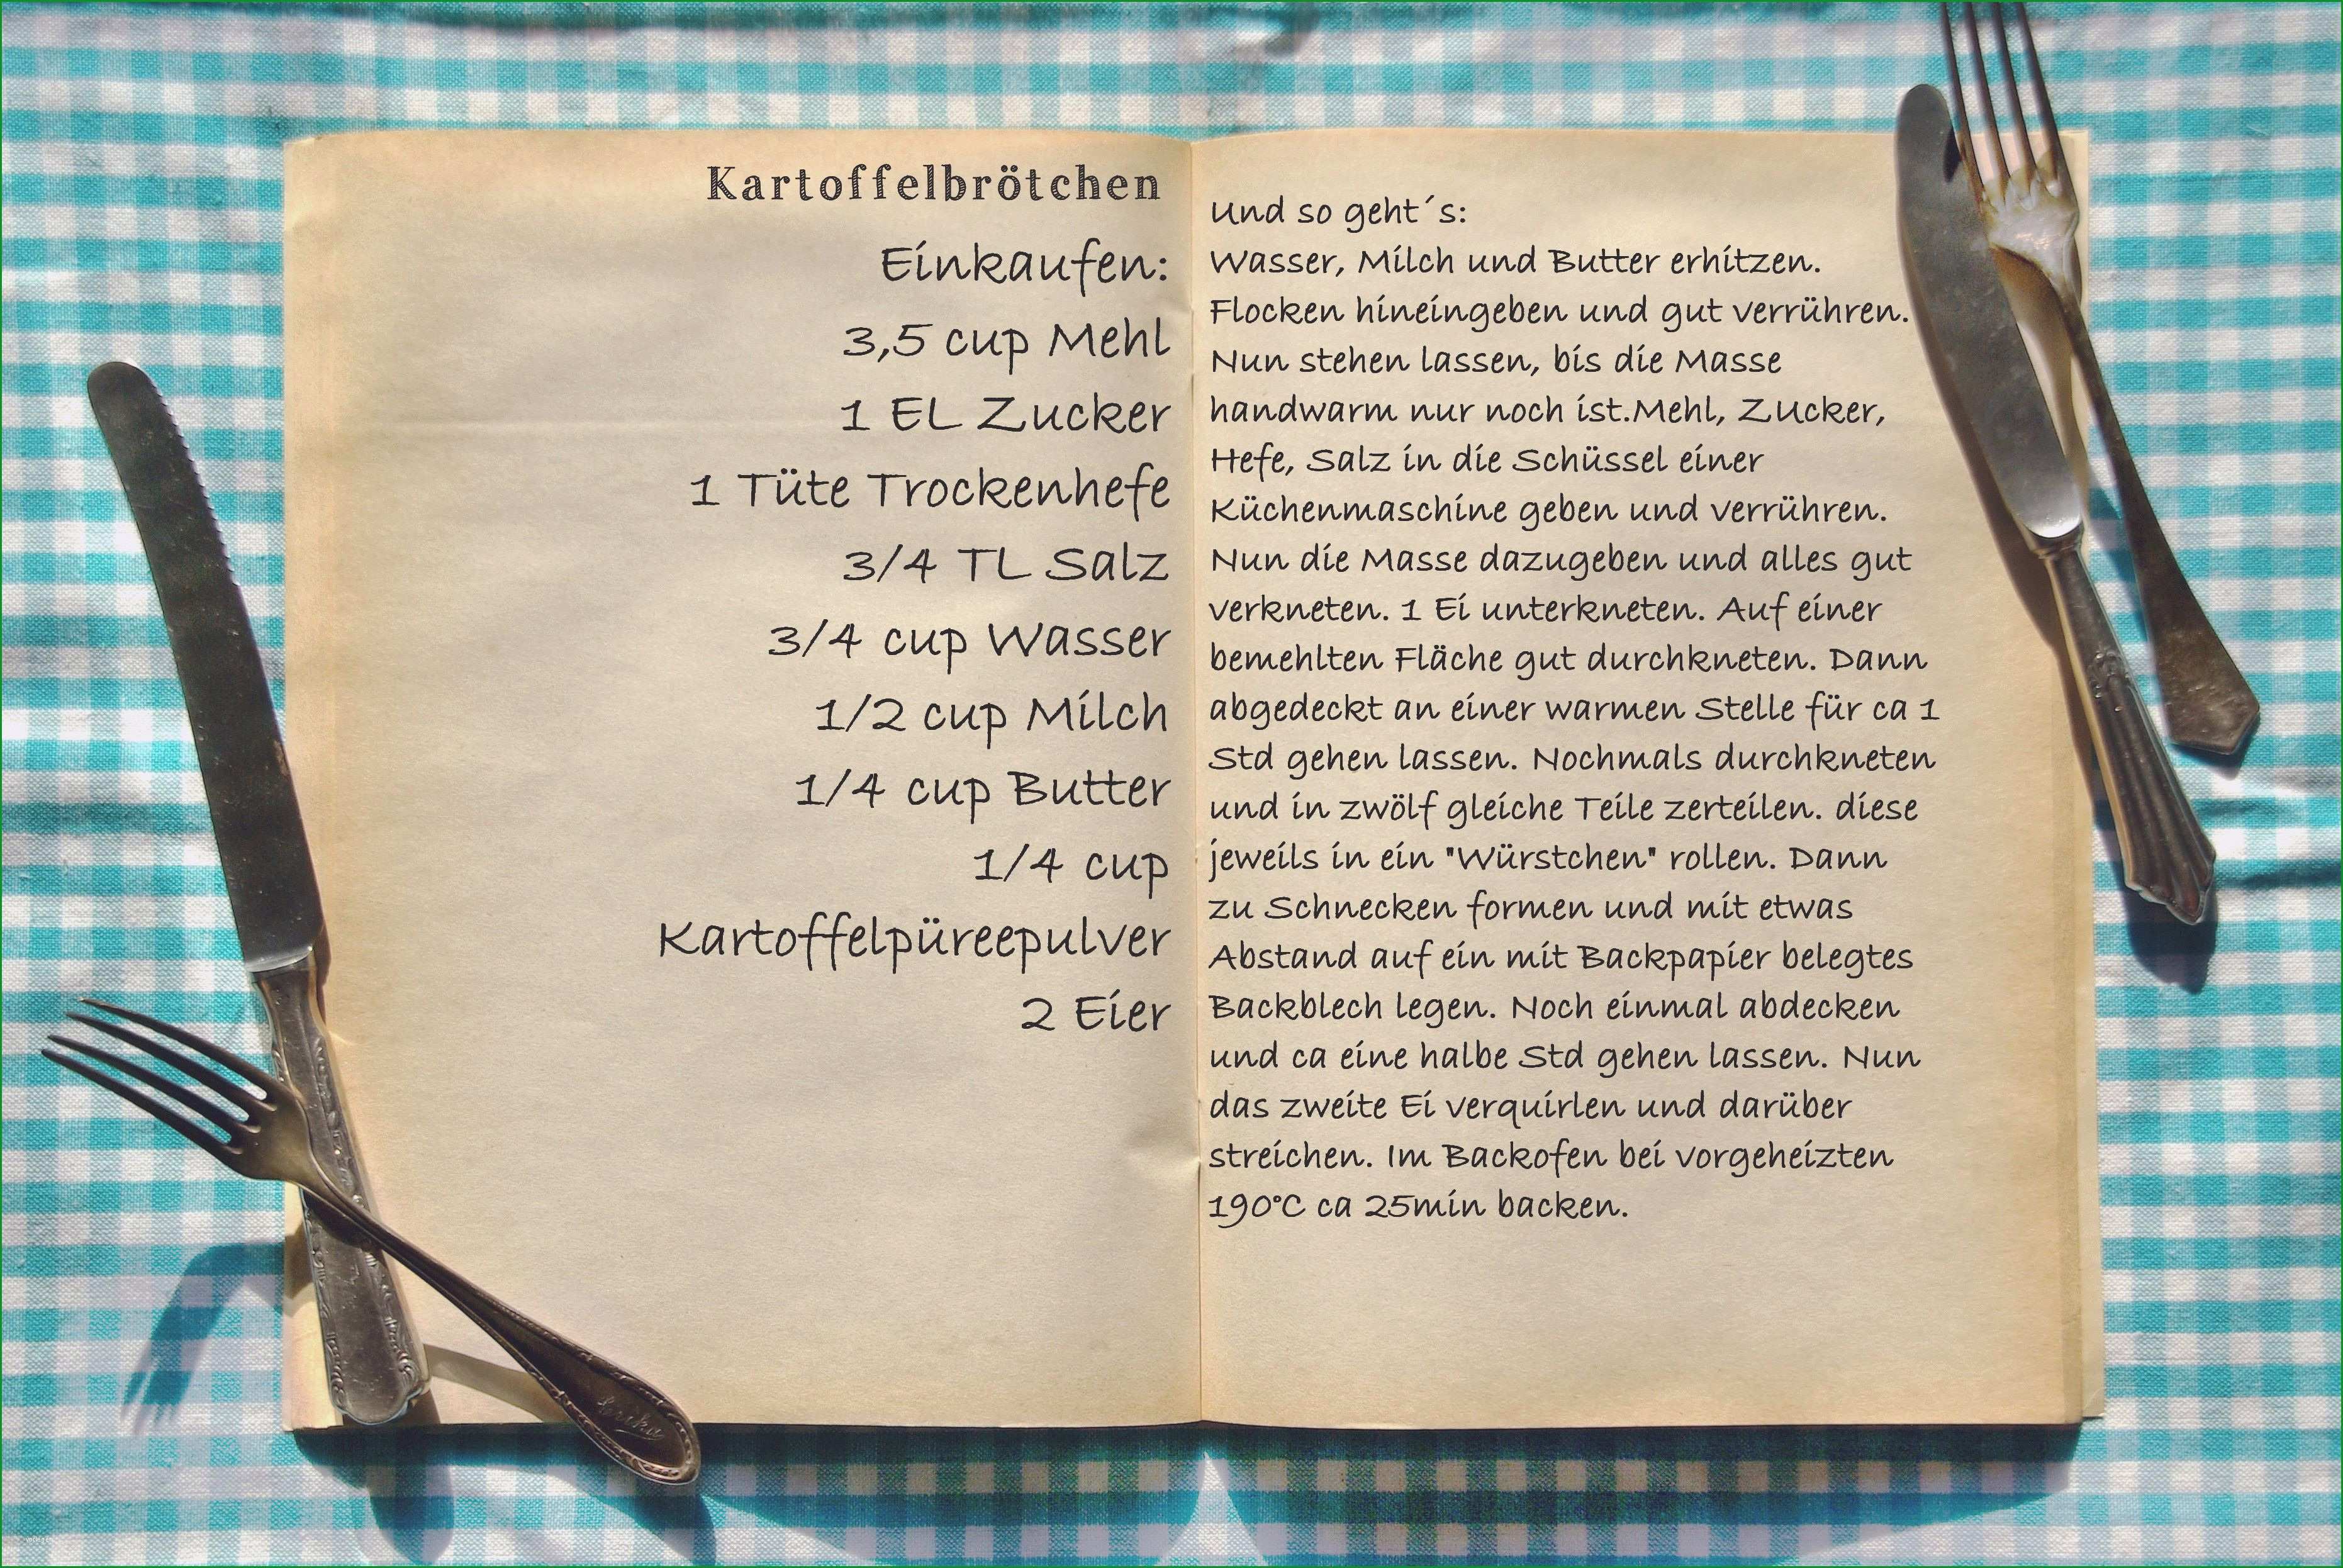 Kartoffelbrötchen
Einkaufen:
3,5 cup Mehl
1 EL Zucker
1 Tüte Trockenhefe
3/4 TL Salz
3/4 cup Wasser
1/2 cup Milch
1/4 cup Butter
1/4 cup
Kartoffelpüreepulver
2 Eier
Und so geht´s:
Wasser, Milch und Butter erhitzen.
Flocken hineingeben und gut verrühren.
Nun stehen lassen, bis die Masse
handwarm nur noch ist.Mehl, Zucker,
Hefe, Salz in die Schüssel einer
Küchenmaschine geben und verrühren.
Nun die Masse dazugeben und alles gut
verkneten. 1 Ei unterkneten. Auf einer
bemehlten Fläche gut durchkneten. Dann
abgedeckt an einer warmen Stelle für ca 1
Std gehen lassen. Nochmals durchkneten
und in zwölf gleiche Teile zerteilen. diese
jeweils in ein "Würstchen" rollen. Dann
zu Schnecken formen und mit etwas
Abstand auf ein mit Backpapier belegtes
Backblech legen. Noch einmal abdecken
und ca eine halbe Std gehen lassen. Nun
das zweite Ei verquirlen und darüber
streichen. Im Backofen bei vorgeheizten
190°C ca 25min backen.